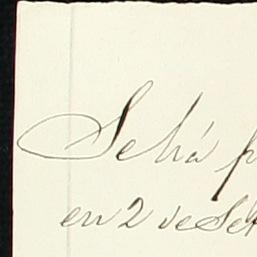 Se há p
en 2 de Set